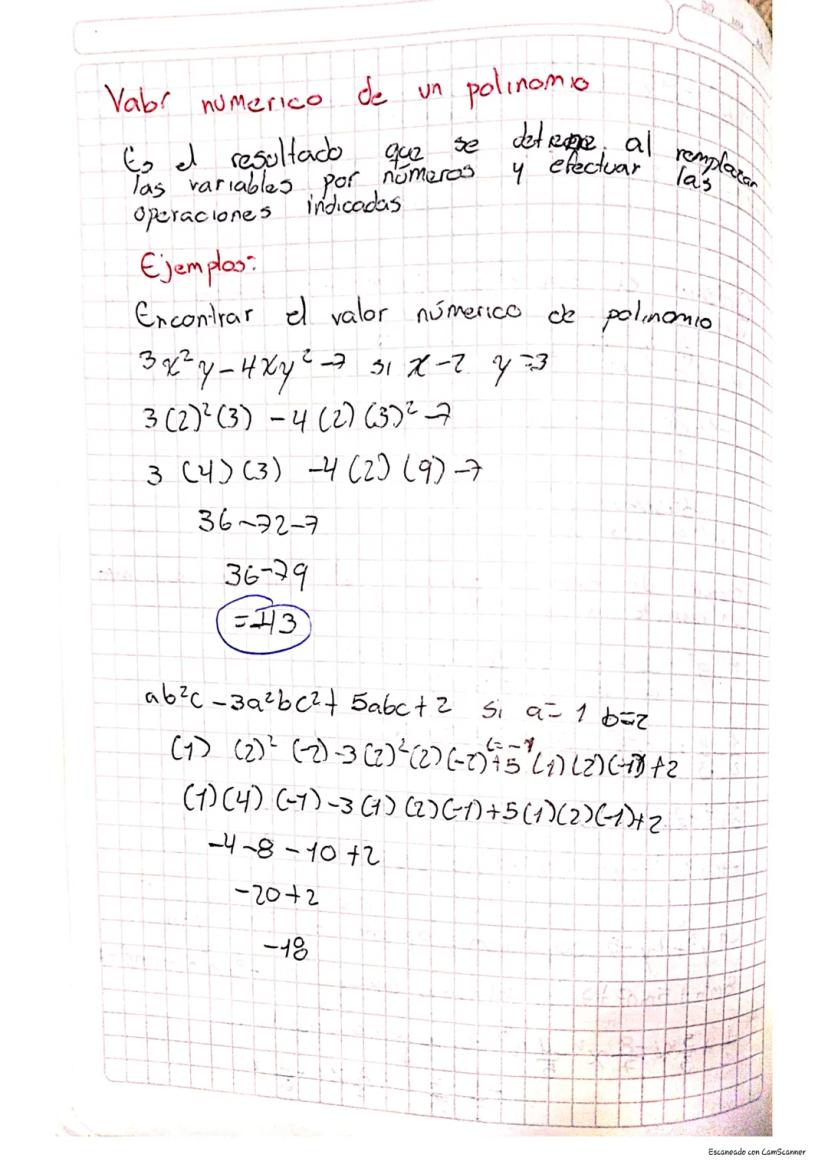 Valor númerico de un polinomio
Es el resultado que se al remplazar
las variables por números y efectuar las
operaciones indicadas
Ejemplos:
Encontrar el valor númerico de polinomio
3x²y - 4xy² - 7 si x - 2 y = 3
3(2)²(3) - 4(2)(3)² - 7
3 (4)(3) - 4(2)(9) - 7
36 - 72 - 7
36 - 79
= -43
ab²c - 3a²bc² + 5abc + 2 si a = 1 b = 2
c = -1
(1) (2)² (-2) - 3(2)²(2)(-2)² + 5(1)(2)(-1) + 2
(1)(4)(-1) - 3(1)(2)(-1) + 5(1)(2)(-1) + 2
-4 - 8 - 10 + 2
-20 + 2
-18
Escaneado con CamScanner